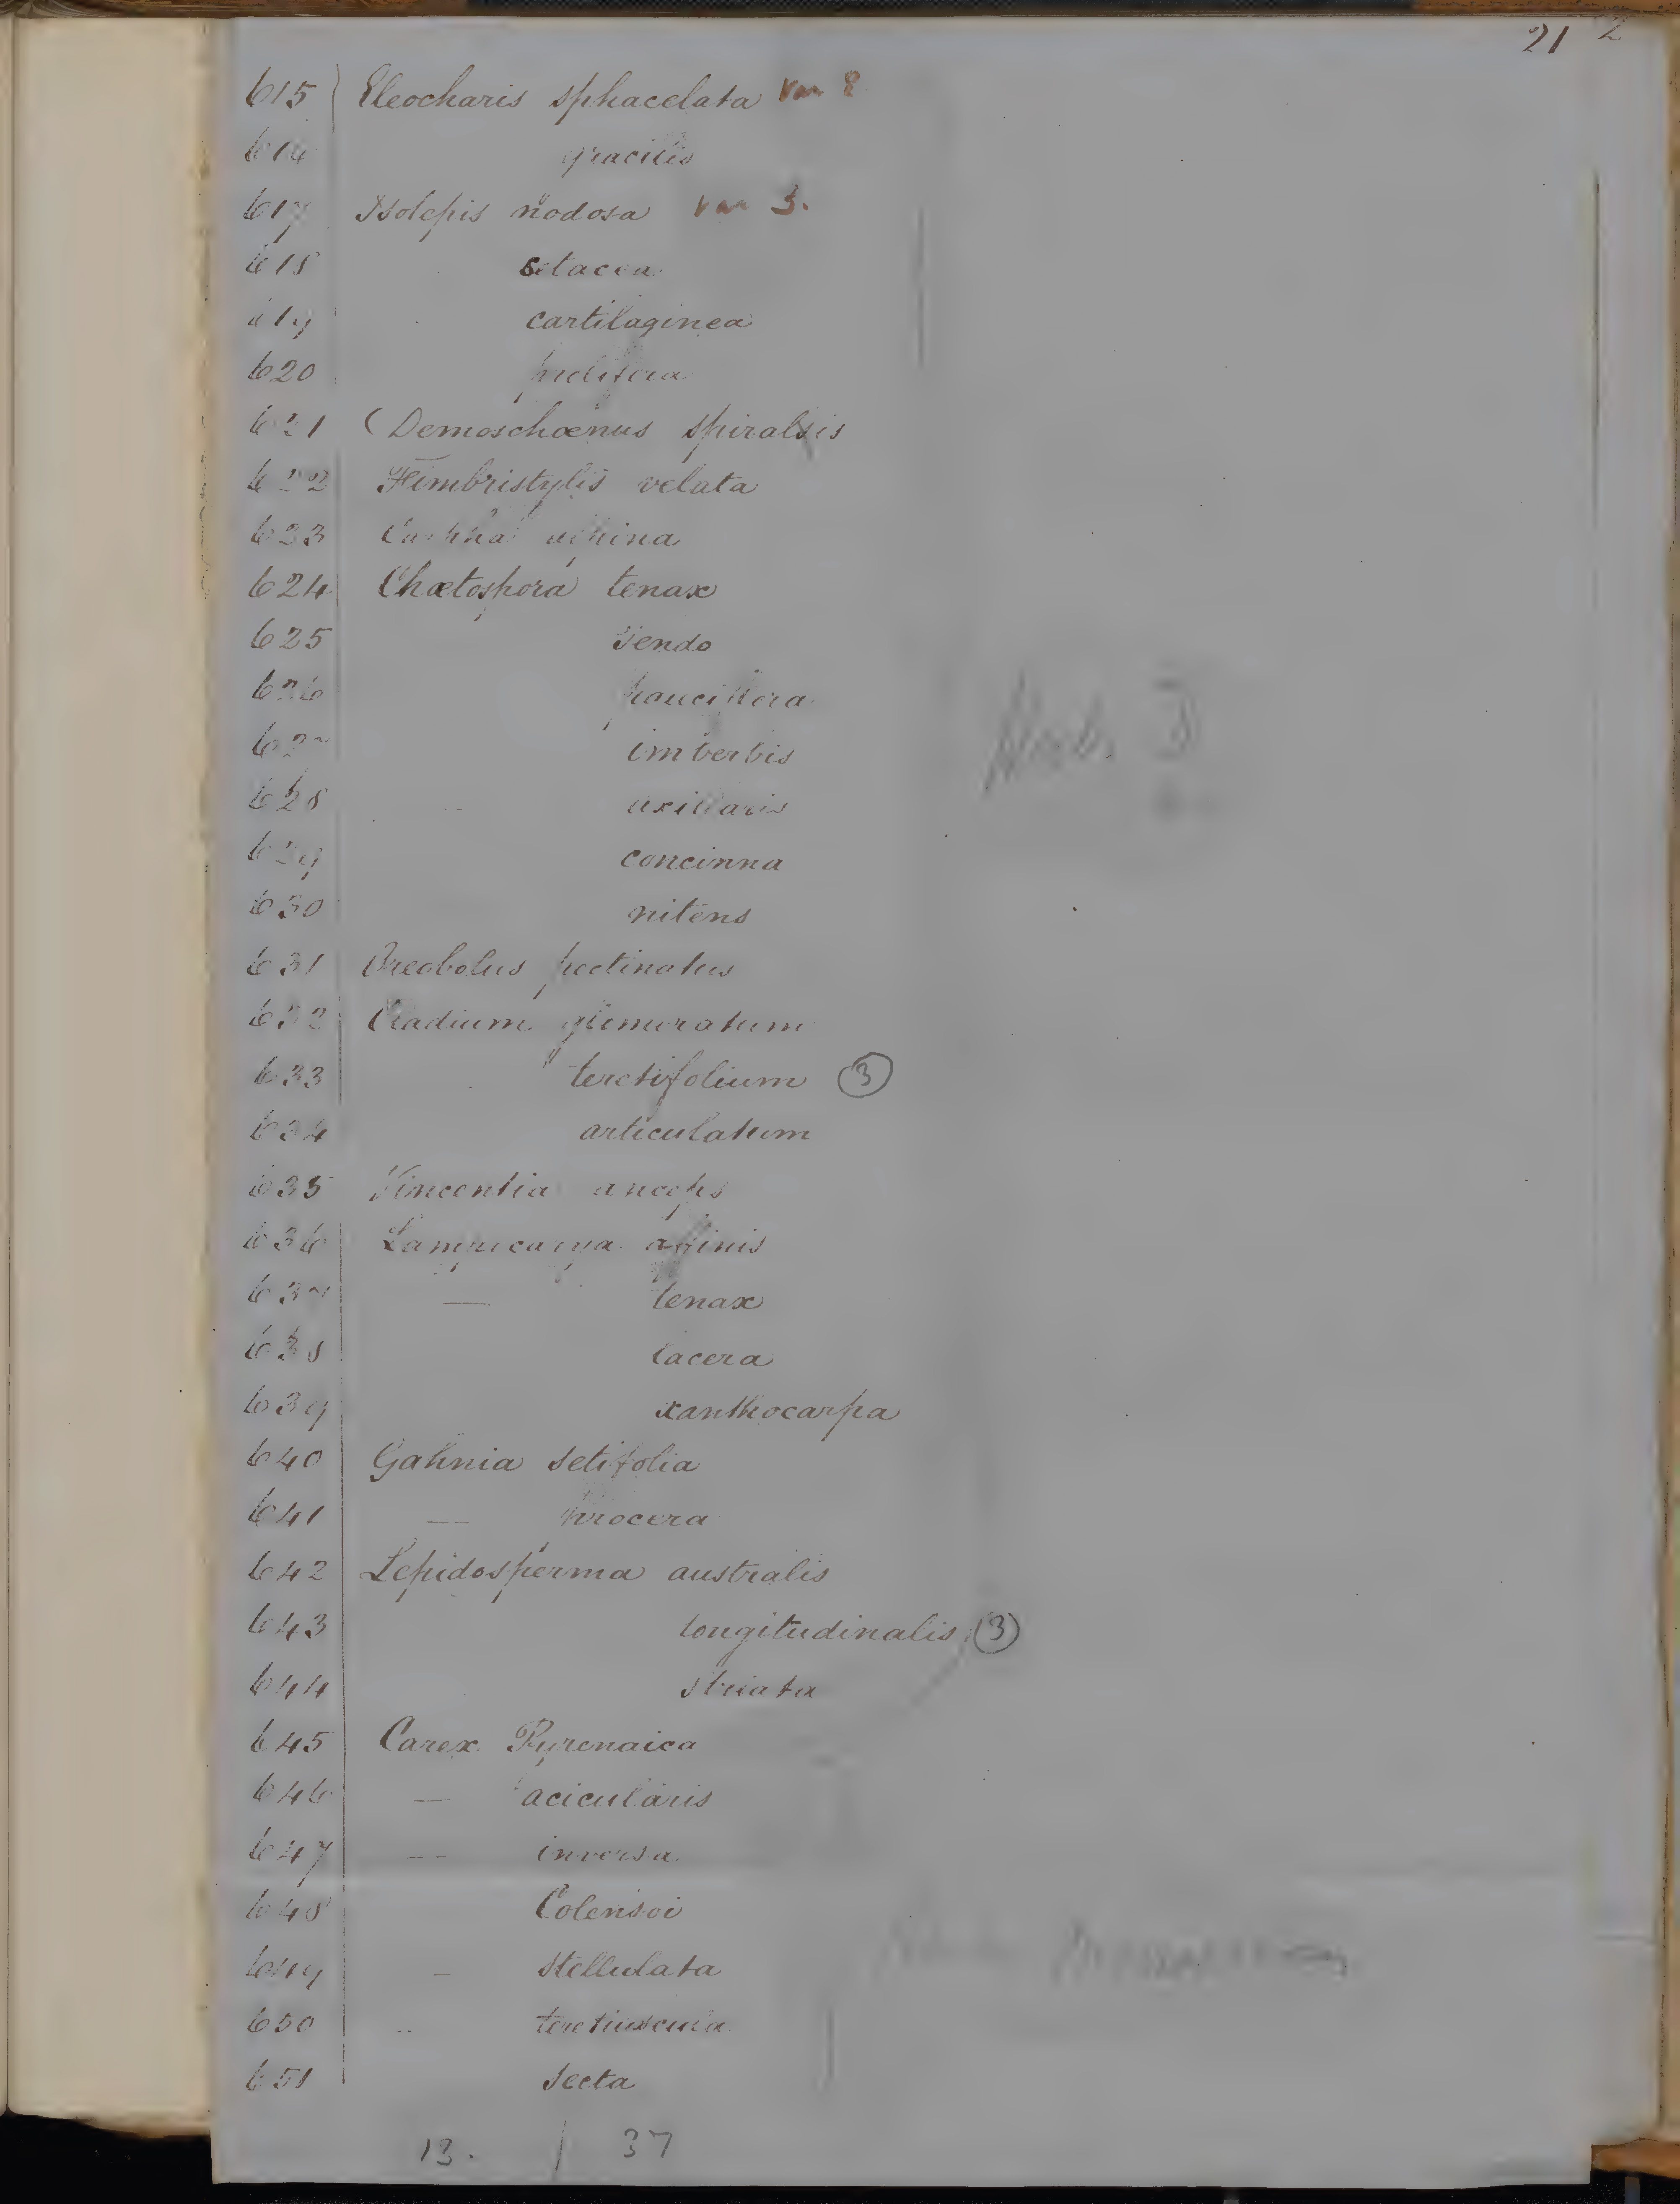 21 2
615 Eleocharis sphacelata var 2
616 gracilis
617 Isolepis nodosa var 3.
618 setacea
619 cartilaginea
620 prolifera
621 Demoschœnus spiralsis
622 Fimbristylis velata
623 alpina
624 Chætospora tenax
625 Tendo
626 pauciflora
627 imberbis
628 axillaris
629 concinna
630 nitens
631 Oreobolus pectinatus
632 Cladium glomeratum
633 teretifolium 3
634 articulatum
635 Vincentia anceps
636 Lampocarya affinis
637 — tenax
638 lacera
639 xanthocarpa
640 Gahnia setifolia
641 — procera
642 Lepidosperma australis
643 longitudinalis 3
644 striata
645 Carex Pyrenaica
646 — acicularis
647 — inversa
648 Colensoi
649 — stellulata
650 teretiuscula
651 secta
13. / 37